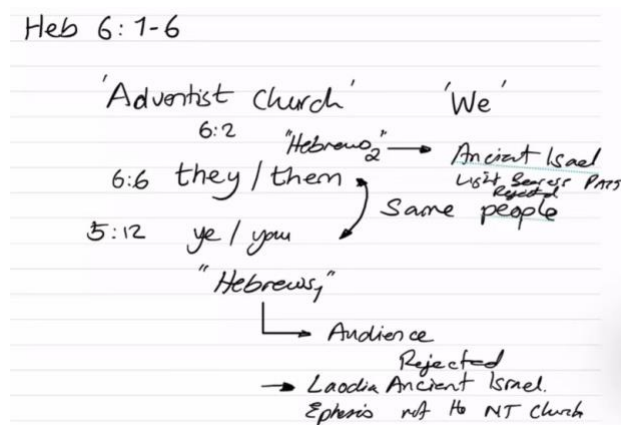 Heb 6:1-6
'Adventist Church' 'We'
6:2 "Hebrews2" → Ancient Israel
6:6 they/them Rejected
Same people
5:12 ye/you
"Hebrews1"
Audience
Rejected
→ Laodia Ancient Israel.
Ephesis not the NT Church